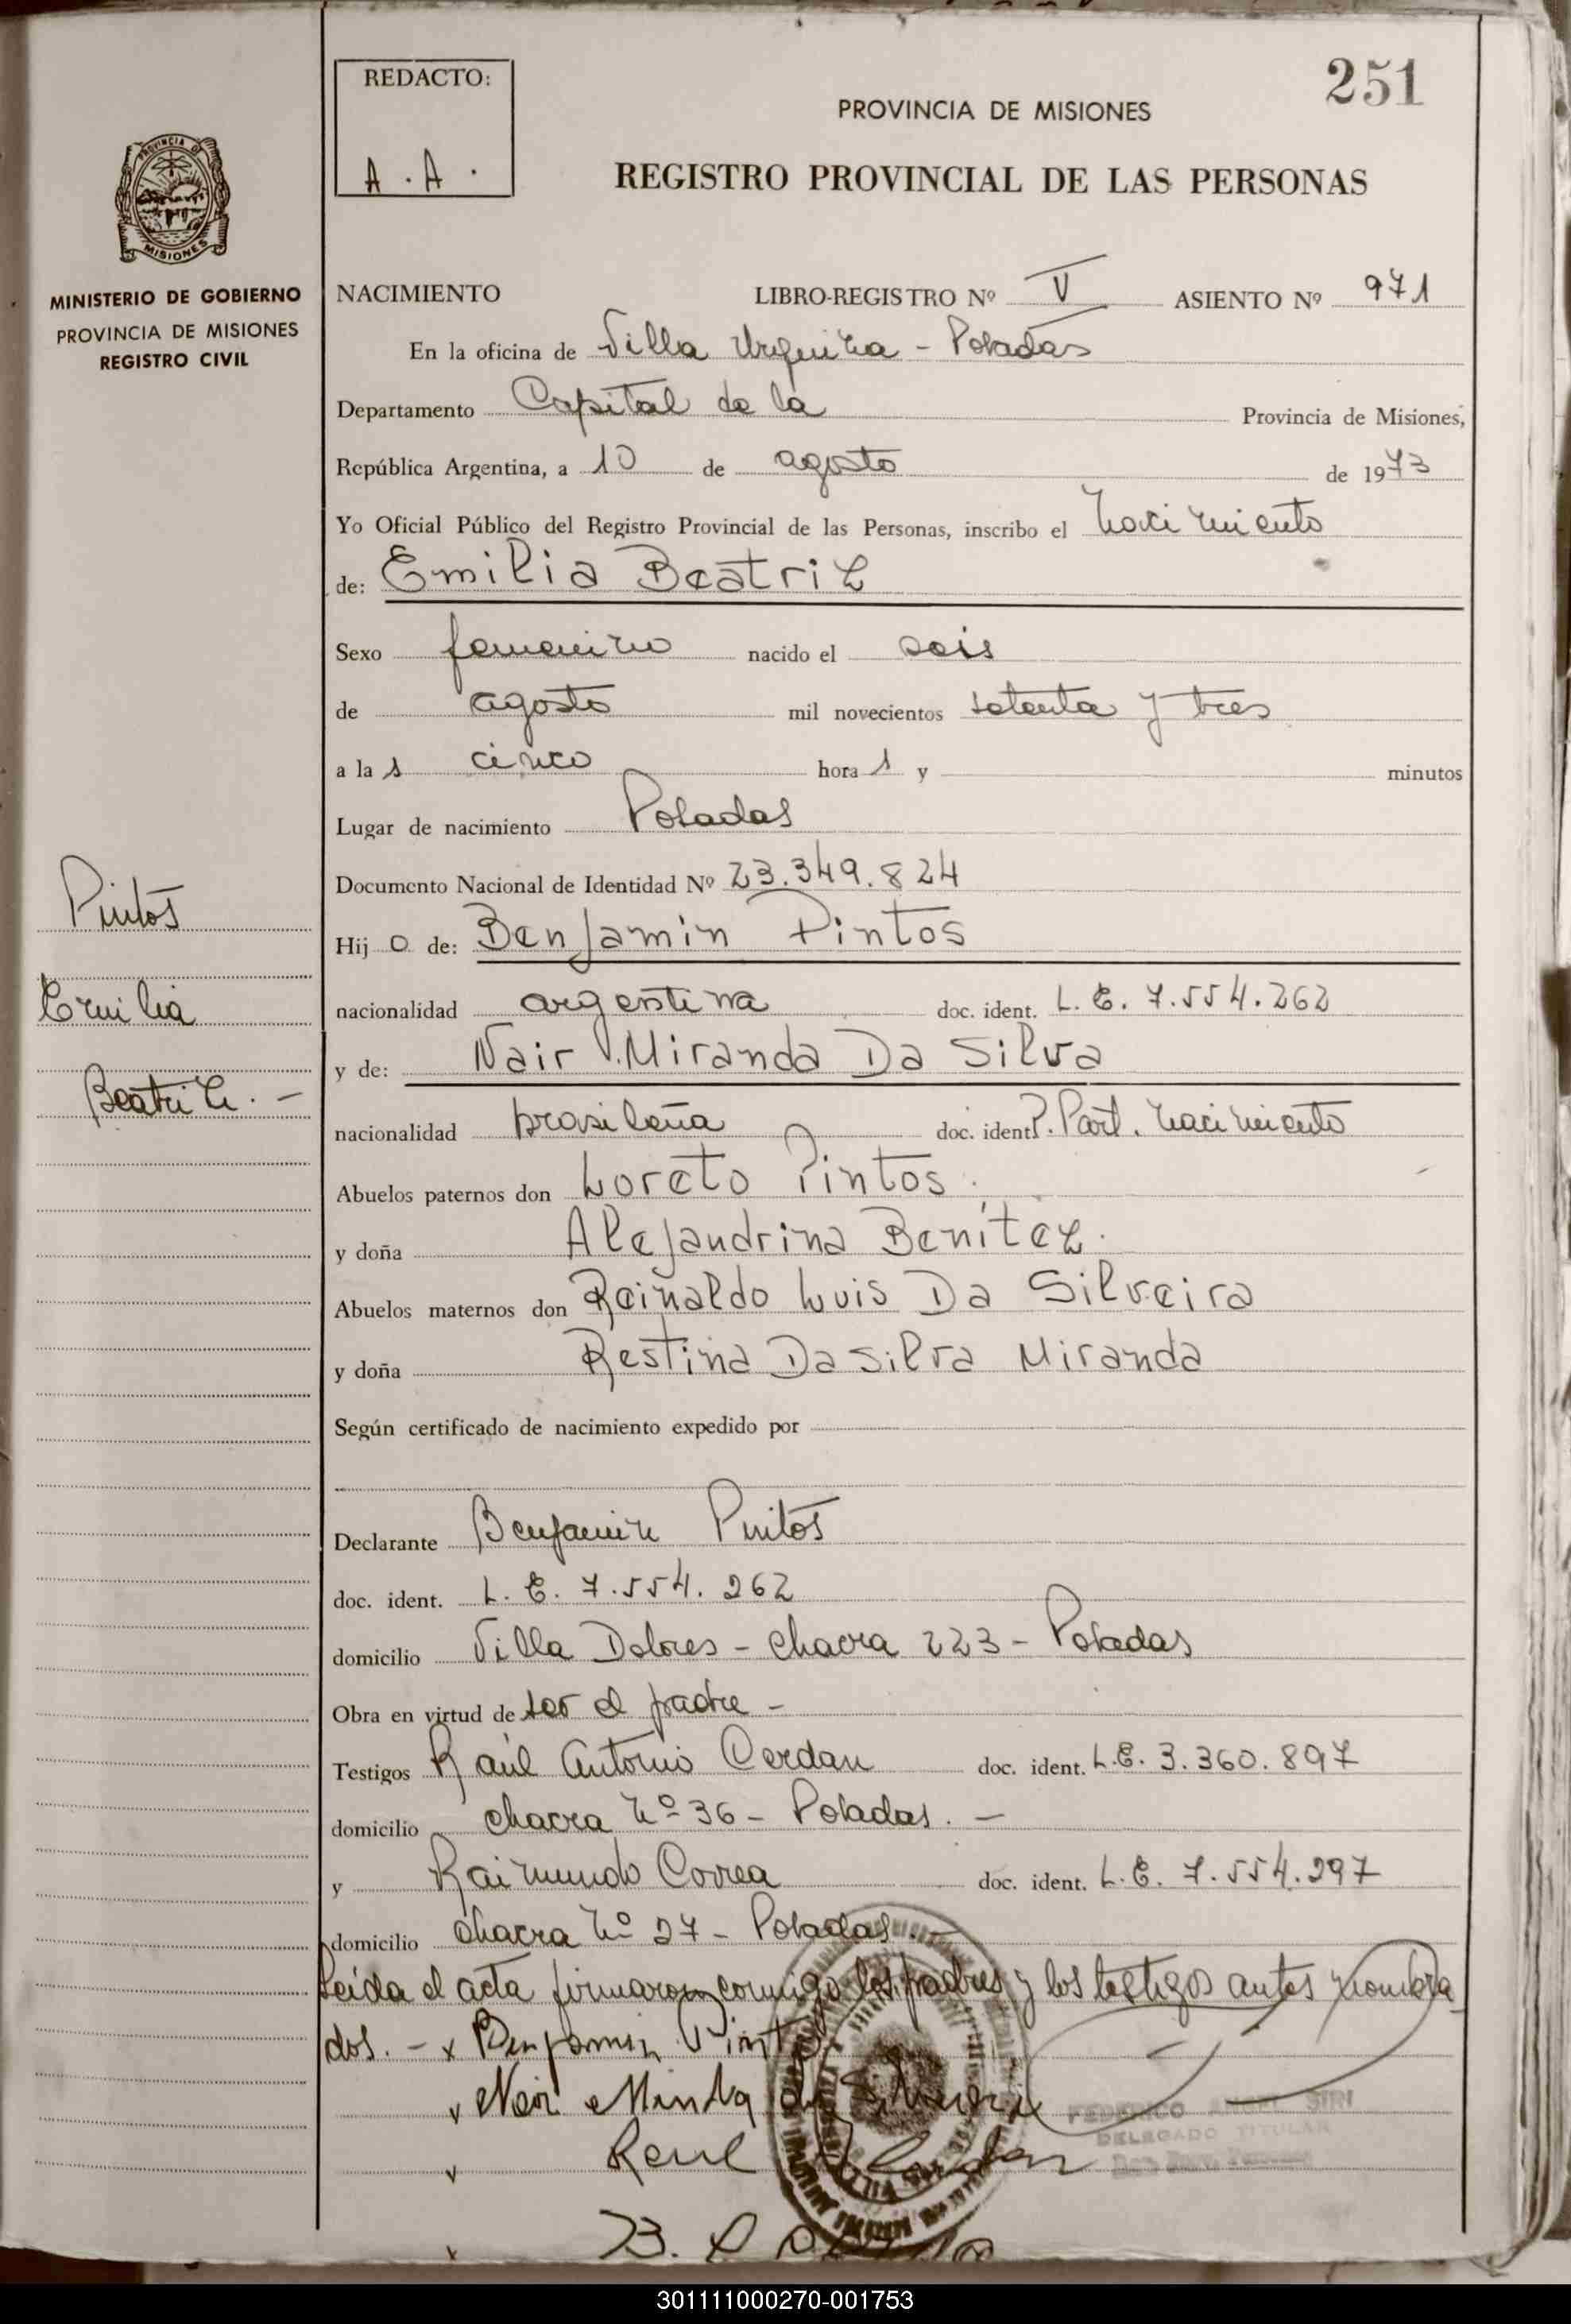 251
REDACTO:
A. A.
PROVINCIA DE MISIONES
REGISTRO PROVINCIAL DE LAS PERSONAS
PROVINCIA DE
MISIONES
MINISTERIO DE GOBIERNO
PROVINCIA DE MISIONES
REGISTRO CIVIL
NACIMIENTO LIBRO-REGISTRO Nº V ASIENTO Nº 971
En la oficina de Villa Urquiza - Posadas
Departamento Capital de la Provincia de Misiones,
República Argentina, a 10 de agosto de 1973
Yo Oficial Público del Registro Provincial de las Personas, inscribo el nacimiento
de: Emilia Beatriz
Sexo femenino nacido el seis
de agosto mil novecientos setenta y tres
a las cinco horas y minutos
Lugar de nacimiento Posadas
Documento Nacional de Identidad Nº 23.349.824
Hijo de: Benjamin Pintos
nacionalidad argentina doc. ident. L. E. 7.554.262
y de: Nair Miranda Da Silva
nacionalidad brasileña doc. ident. P. Part. nacimiento
Abuelos paternos don Loreto Pintos.
y doña Alejandrina Benítez.
Abuelos maternos don Reinaldo Luis Da Silveira
y doña Restina Da Silva Miranda
Según certificado de nacimiento expedido por
Declarante Benjamin Pintos
doc. ident. L. E. 7.554.262
domicilio Villa Dolores - chacra 223 - Posadas
Obra en virtud de ser el padre -
Testigos Raúl Antonio Cerdan doc. ident. L.E. 3.360.897
domicilio chacra Nº 36 - Posadas. -
y Raimundo Correa doc. ident. L. E. 7.554.297
domicilio chacra Nº 27 - Posadas. -
Leída el acta firmaron conmigo los padres y los testigos antes nombra
dos. - x Benjamin Pintos
FEDERICO ANGEL SIRI
DELEGADO TITULAR
Pintos
Emilia
Beatriz. -
301111000270-001753